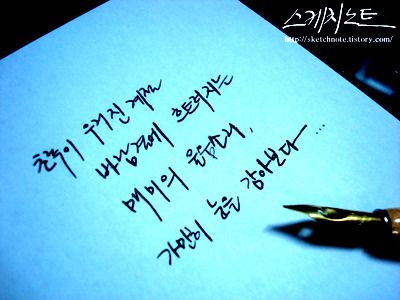 스케치노트
http://sketchnote.tistory.com/
초록이 우거진 계절
바람결에 흐트러지는
매미의 울음소리,
가만히 눈을 감아본다…